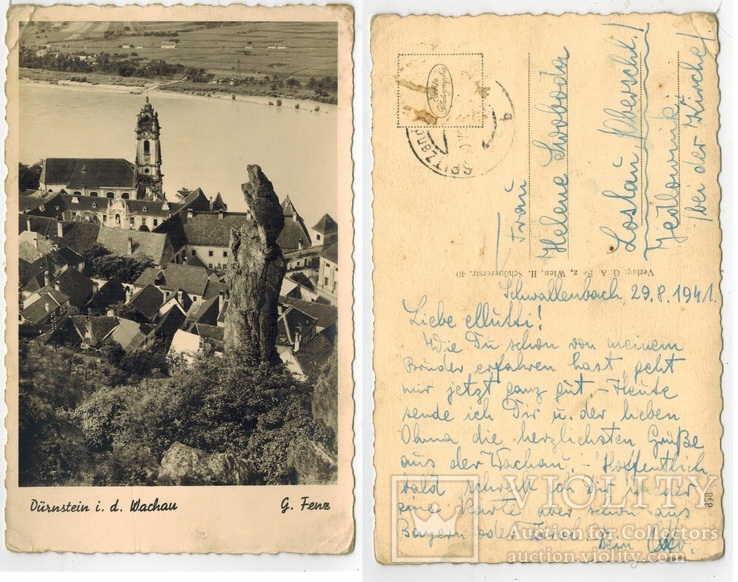 Dürnstein i. d. Wachau
G. Fenz
SPITZ
Frau
Helene Swoboda
Loslau Oberschl.!
Jedlownik
(bei der Kirche)
Verlag: G. A. Fenz, Wien, II. Schönererstr. 40
Schwallenbach, 29.8.1941.
Liebe Mutti!
Wie Du schon von meinem
Bruder erfahren hast, geht
mir jetzt ganz gut – Heute
sende ich Dir u. der lieben
Ohma die herzlichsten Grüße
aus der Wachau, – Hoffentlich
bald
eine Karte aber schon aus
Bayern oder
Dein Otto.
858
VIOLITY
Auction for Collectors
auction.violity.com